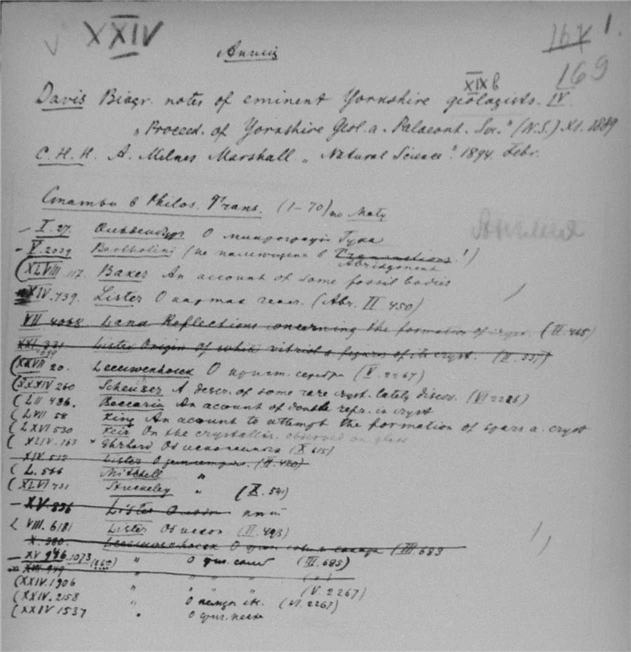 XXIV
167 1.
Англия 169
XIX в
Davis Biogr. notes of eminent Yorkshire geologists. IV.
„Proceed. of Yorkshire Geol. a. Palaeont. Soc." (N.S.) XI. 1889
C. H. H. A. Milnes Marshall „Natural Science". 1894. Febr.
Статьи в Philos. Trans. (1–70) по Maty
Англия
I. 27. Ольденбург О микрографии Гука
V. 2039 Bartholini (не помещена в Abridgement!)
(XLVIII. 117. Baker An account of some fossil bodies
XIV. 739. Lister О картах геол. (Abr. II 450)
VII 4068 Land Reflections concerning the formation of cryst. (II. 465)
XXI 331 Lister Origin of white vitriol a figures of its cryst. (II. 531)
(XXVII 20. Leeuwenhoek О крист. серебра (V. 2267)
(XXXIV 260 Scheuzer A descr. of some rare cryst. lately discov. (VI 2226)
(LII 486. Beccaria An account of double refr. in cryst
(LVII 58 King An account to attempt the formation of spars a. cryst
(LXVI 530 Keir On the crystallis. observed on glass
(XLIV. 167 Ehrhard Об ископаемых (X 615)
XIV 512 Lister О (II. 420)
(L. 566 Mitchell "
(XLVI 731 Stuckeley " (X. 541)
XV 836 Lister О
(VIII. 6181 Lister Об ископ. (II. 493)
X. 380. Leeuwenhoek О фиг. сахара (III. 683
XV 946. 1073 " О фиг. солей (III. 685)
XIX 949 " " " "
(XXIV. 1906 " " " " (V. 2267)
(XXIV. 2158 " (VI. 2267)
(XXIV 1537 " О фиг. песка